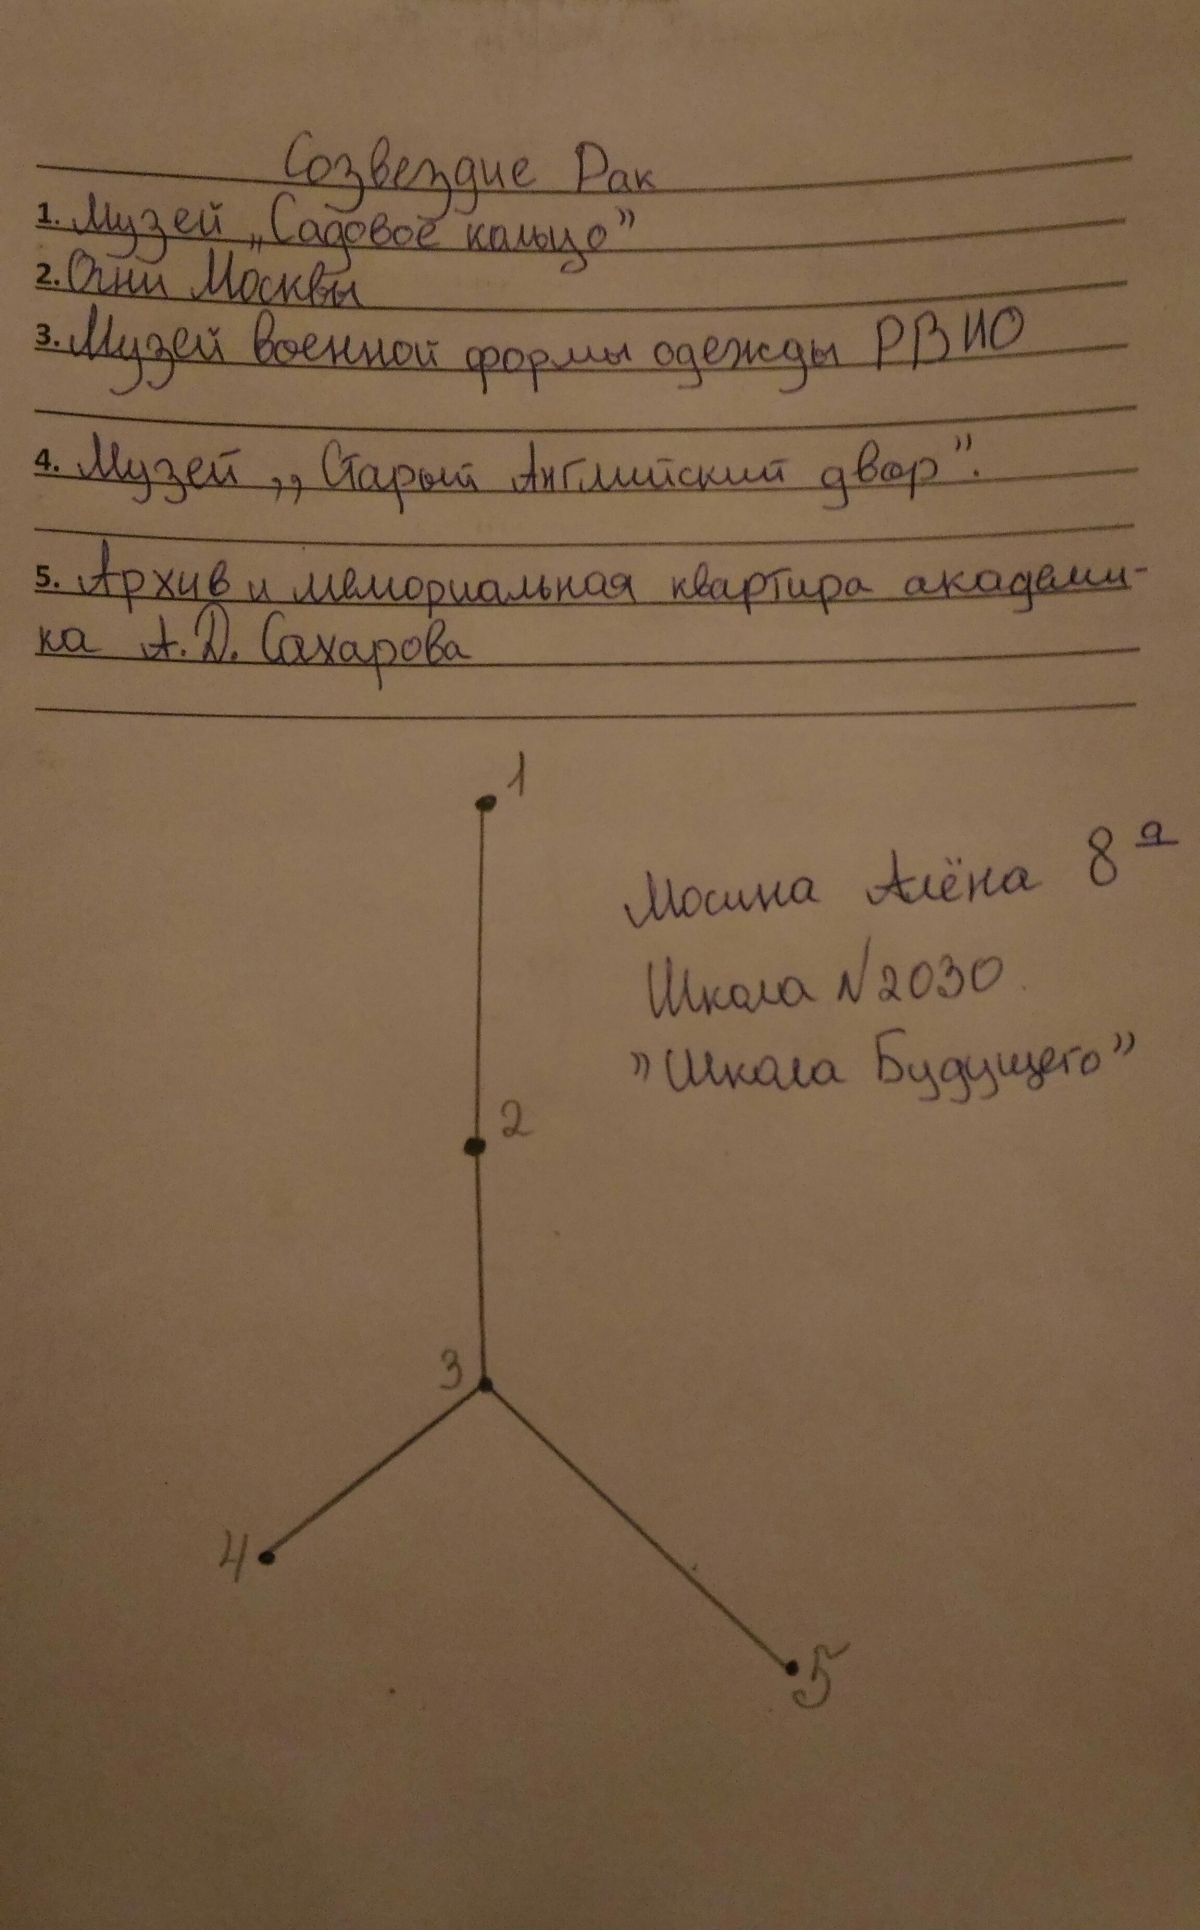 Созвездие Рак
1. Музей „Садовое кольцо”
2. Огни Москвы
3. Музей военной формы одежды РВИО
4. Музей ,,Старый Английский двор”.
5. Архив и мемориальная квартира академи-
ка А.Д. Сахарова
1
Мосина Алёна 8 а
Школа №2030
”Школа Будущего”
2
3
4
5